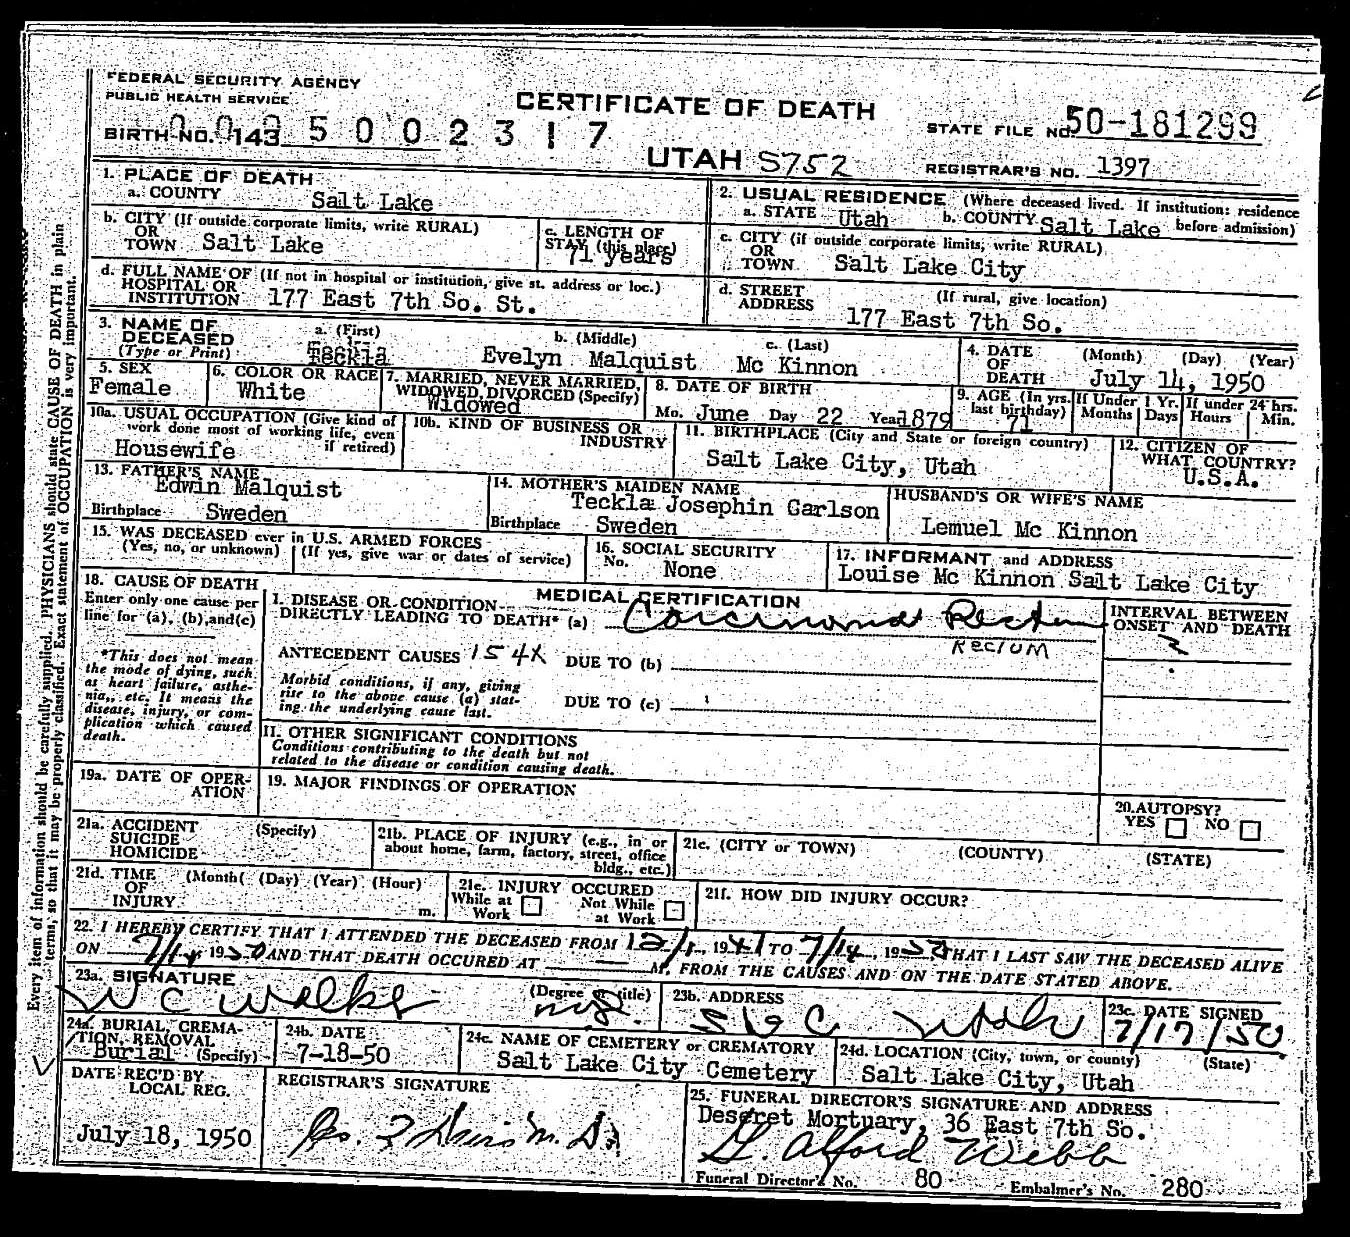 FEDERAL SECURITY AGENCY
PUBLIC HEALTH SERVICE
CERTIFICATE OF DEATH
UTAH S752
BIRTH NO. 143 5 0 0 2 3 1 7
STATE FILE NO. 50-181299
REGISTRAR'S NO. 1397
1. PLACE OF DEATH
a. COUNTY Salt Lake
b. CITY (If outside corporate limits, write RURAL)
OR
TOWN Salt Lake
c. LENGTH OF
STAY (this place)
71 years
d. FULL NAME OF (If not in hospital or institution, give st. address or loc.)
HOSPITAL OR
INSTITUTION 177 East 7th So. St.
2. USUAL RESIDENCE (Where deceased lived. If institution: residence
before admission)
a. STATE Utah b. COUNTY Salt Lake
c. CITY (if outside corporate limits, write RURAL)
OR
TOWN Salt Lake City
d. STREET (If rural, give location)
ADDRESS 177 East 7th So.
3. NAME OF
DECEASED
(Type or Print)
a. (First) b. (Middle) c. (Last)
Evelyn Malquist Mc Kinnon
4. DATE (Month) (Day) (Year)
OF
DEATH July 14, 1950
5. SEX
Female
6. COLOR OR RACE
White
7. MARRIED, NEVER MARRIED,
WIDOWED, DIVORCED (Specify)
Widowed
8. DATE OF BIRTH
Mo. June Day 22 Year 1879
9. AGE (In yrs.
last birthday)
71
If Under 1 Yr.
Months Days
If under 24 hrs.
Hours Min.
10a. USUAL OCCUPATION (Give kind of
work done most of working life, even
if retired)
Housewife
10b. KIND OF BUSINESS OR
INDUSTRY
11. BIRTHPLACE (City and State or foreign country)
Salt Lake City, Utah
12. CITIZEN OF
WHAT COUNTRY?
U.S.A.
13. FATHER'S NAME
Edwin Malquist
Birthplace Sweden
14. MOTHER'S MAIDEN NAME
Teckla Josephin Carlson
Birthplace Sweden
HUSBAND'S OR WIFE'S NAME
Lemuel Mc Kinnon
15. WAS DECEASED ever in U.S. ARMED FORCES
(Yes, no, or unknown) (If yes, give war or dates of service)
16. SOCIAL SECURITY
No. None
17. INFORMANT and ADDRESS
Louise Mc Kinnon Salt Lake City
18. CAUSE OF DEATH
Enter only one cause per
line for (a), (b), and (c)
*This does not mean
the mode of dying, such
as heart failure, asthe-
nia, etc. It means the
disease, injury, or com-
plication which caused
death.
MEDICAL CERTIFICATION
I. DISEASE OR CONDITION
DIRECTLY LEADING TO DEATH* (a) Carcinoma Rectum
RECTUM
ANTECEDENT CAUSES 154X DUE TO (b)
Morbid conditions, if any, giving
rise to the above cause (a) stat-
ing the underlying cause last.
DUE TO (c)
INTERVAL BETWEEN
ONSET AND DEATH
II. OTHER SIGNIFICANT CONDITIONS
Conditions contributing to the death but not
related to the disease or condition causing death.
19a. DATE OF OPER-
ATION
19. MAJOR FINDINGS OF OPERATION
20. AUTOPSY?
YES NO
21a. ACCIDENT (Specify)
SUICIDE
HOMICIDE
21b. PLACE OF INJURY (e.g., in or
about home, farm, factory, street, office
bldg., etc.)
21c. (CITY or TOWN) (COUNTY) (STATE)
21d. TIME (Month( (Day) (Year) (Hour)
OF
INJURY m.
21e. INJURY OCCURED
While at Work Not While at Work
21f. HOW DID INJURY OCCUR?
22. I HEREBY CERTIFY THAT I ATTENDED THE DECEASED FROM 12/1, 1947 TO 7/14, 1950 THAT I LAST SAW THE DECEASED ALIVE
ON 7/14 1950 AND THAT DEATH OCCURED AT M, FROM THE CAUSES AND ON THE DATE STATED ABOVE.
23a. SIGNATURE (Degree or title)
W C Walker M.D.
23b. ADDRESS
SLC Utah
23c. DATE SIGNED
7/17/50
24a. BURIAL, CREMA-
TION, REMOVAL
Burial (Specify)
24b. DATE
7-18-50
24c. NAME OF CEMETERY or CREMATORY
Salt Lake City Cemetery
24d. LOCATION (City, town, or county) (State)
Salt Lake City, Utah
DATE REC'D BY
LOCAL REG.
July 18, 1950
REGISTRAR'S SIGNATURE
25. FUNERAL DIRECTOR'S SIGNATURE AND ADDRESS
Deseret Mortuary, 36 East 7th So.
G. Alford Webb
Funeral Director's No. 80 Embalmer's No. 280
Every item of information should be carefully supplied. PHYSICIANS should state CAUSE OF DEATH in plain
terms, so that it may be properly classified. Exact statement of OCCUPATION is very important.